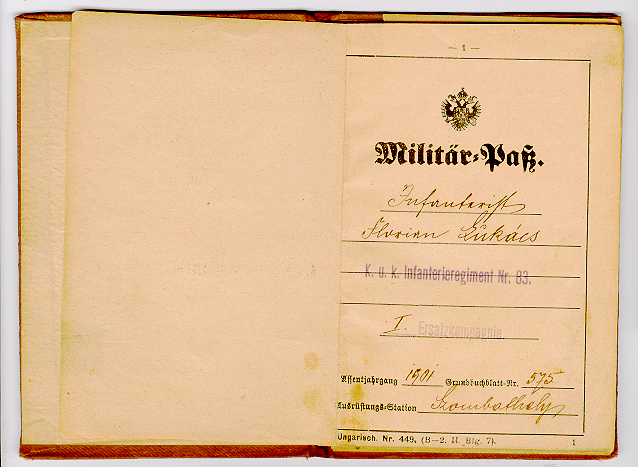 — 1 —
Militär-Paß.
Infanterist
Florian Lukács
K. u. k. Infanterieregiment Nr. 83.
I. Ersatzkompagnie
Assentjahrgang 1901 Grundbuchblatt-Nr. 575
Ausrüstungs-Station Szombathely
Ungarisch. Nr. 449. (B—2. H. Blg. 7). 1